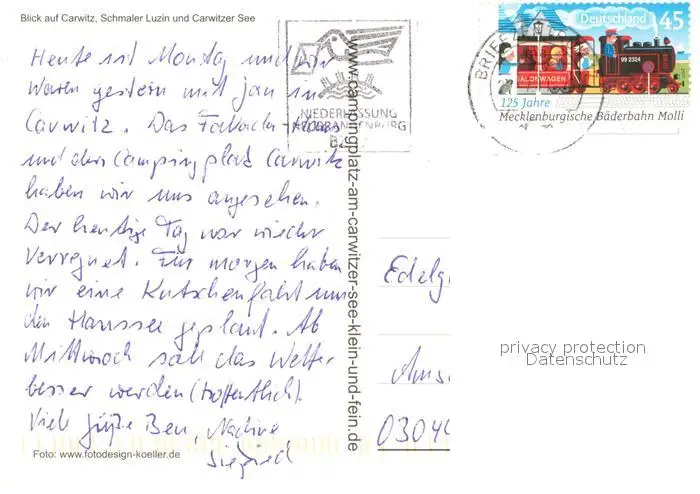 Blick auf Carwitz, Schmaler Luzin und Carwitzer See
Heute ist Montag und wir
waren gestern mit Jan in
Carwitz. Das Fallada-Haus
und den Campingplatz Carwitz
haben wir uns angesehen.
Der heutige Tag war wieder
verregnet. Für morgen haben
wir eine Kutschenfahrt um
den Haussee geplant. Ab
Mittwoch soll das Wetter
besser werden (hoffentlich).
Viele Grüße Ben, Nadine
Siegfried
Foto: www.fotodesign-koeller.de
www.campingplatz-am-carwitzer-see-klein-und-fein.de
NIEDERLASSUNG
BZ
BRIEFZ
Deutschland 45
99 2324
SALONWAGEN
125 Jahre
Mecklenburgische Bäderbahn Molli
Edelg
Ams
0304
privacy protection
Datenschutz